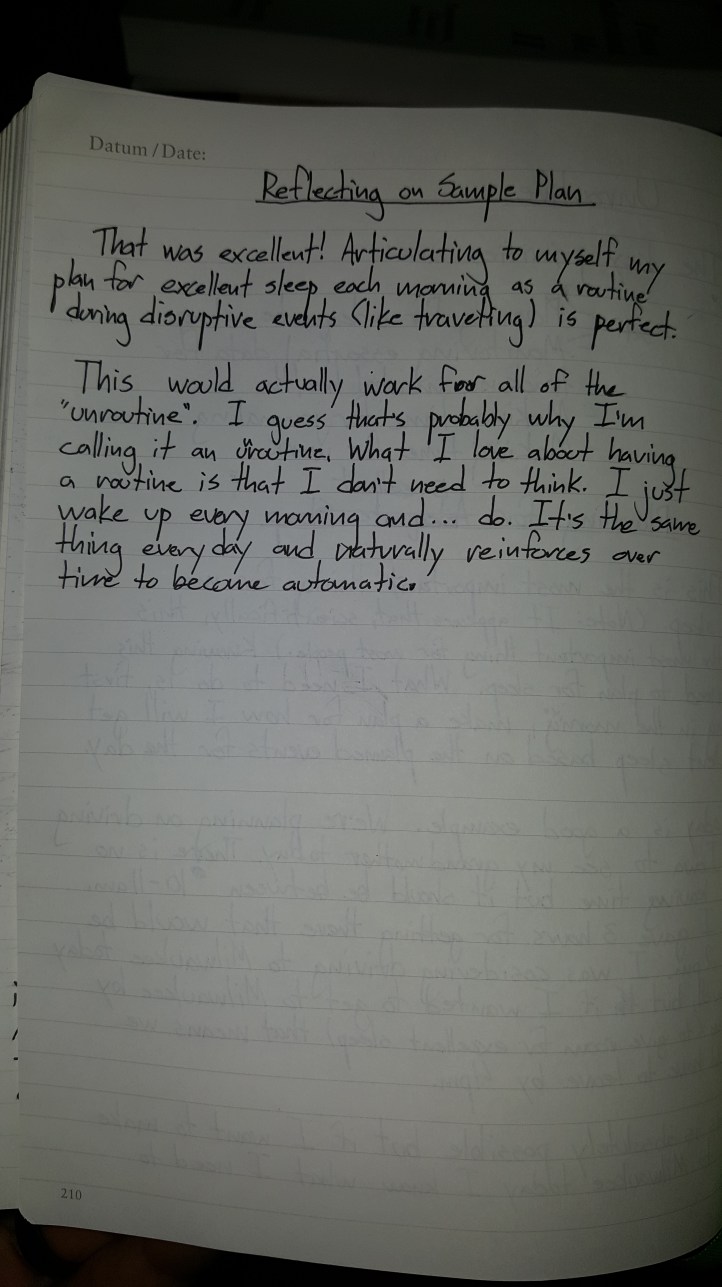 Datum / Date:
Reflecting on Sample Plan
That was excellent! Articulating to myself my
plan for excellent sleep each morning as a routine
during disruptive events (like travelling) is perfect.
This would actually work for all of the
"unroutine". I guess that's probably why I'm
calling it an uroutine. What I love about having
a routine is that I don't need to think. I just
wake up every morning and... do. It's the same
thing every day and naturally reinforces over
time to become automatic.
210